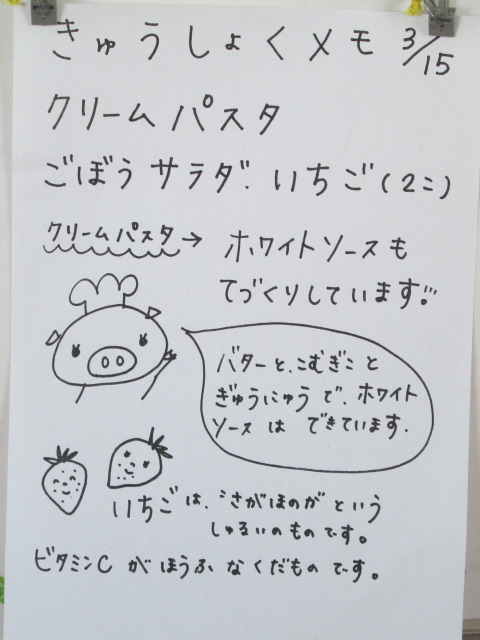 きゅうしょくメモ 3/15
クリームパスタ
ごぼうサラダ. いちご(2こ)
クリームパスタ→ ホワイトソースも
てづくりしています!!
バターと、こむぎこと
ぎゅうにゅうで、ホワイト
ソースは できています.
いちごは、"さがほのか"という
しゅるいのものです。
ビタミンCがほうふなくだものです。